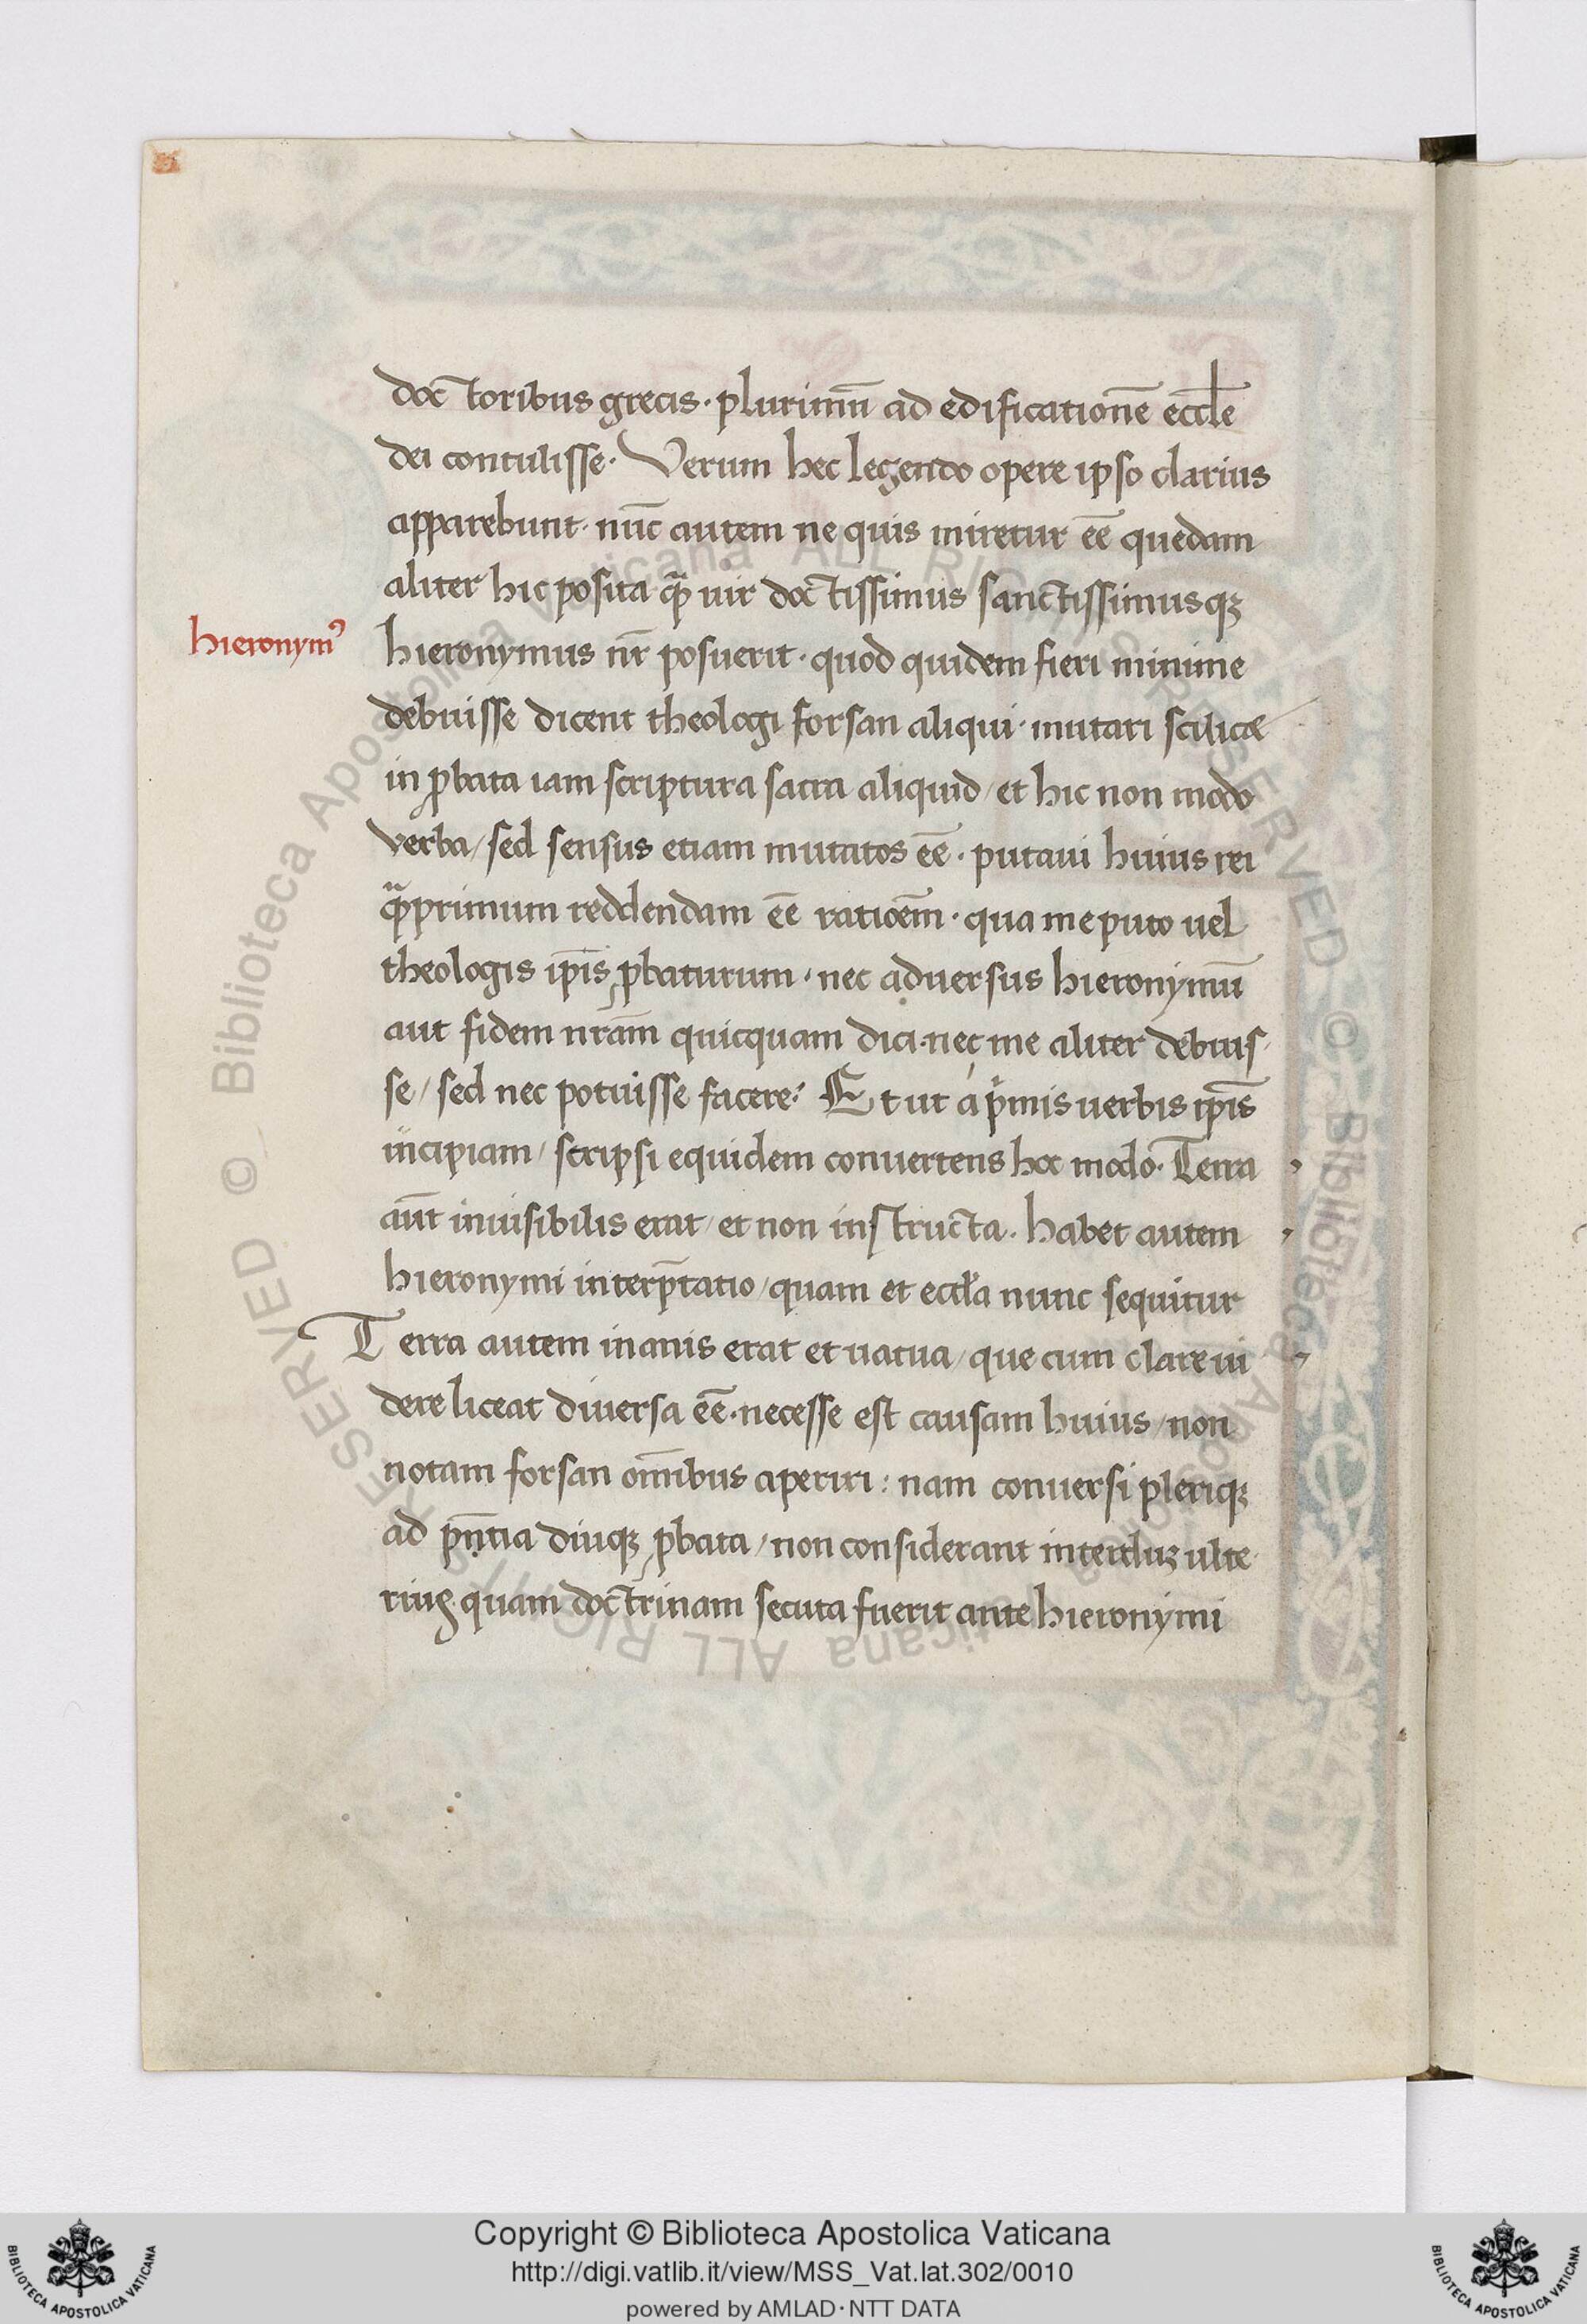 doctoribus grecis · plurimū ad edificationē eccłe
dei contulisse · Verum hec legendo opere ipso clarius
apparebunt · nūc autem ne quis miretur eē quedam
aliter hic posita qᷓ uir doctissimus sanctissimusqꝫ
hieronymꝰ
hieronymus nr̄ posuerit · quod quidem fieri minime
debuisse dicent theologi forsan aliqui · mutari scilicet
in ꝓbata iam scriptura sacra aliquid / et hic non modo
verba / sed sensus etiam mutatos eē · putaui huius rei
qᷓprimum reddendam eē ratioēm · qua me puto uel
theologis ip̄is ꝓbaturum · nec aduersus hieronymū
aut fidem nr̄am quicquam dici · nec me aliter debuis
se / sed nec potuisse facere : Et ut á pͥmis uerbis ip̄is
incipiam / scripsi equidem conuertens hoc modo · Terra
aūt inuisibilis erat / et non instructa · habet autem
hieronymi interp̄tatio / quam et eccłia nunc sequitur
Terra autem inanis erat et uacua / que cum clare ui
dere liceat diuersa eē · necesse est causam huius / non
notam forsan om̄ibus aperiri : nam conuersi pleriqꝫ
ad pn̄tia diuqꝫ ꝓbata / non considerant interduꝫ ulte
rius quam doctrinam secuta fuerit ante hieronymi
Biblioteca Apostolica Vaticana ALL RIGHTS RESERVED ©
Copyright © Biblioteca Apostolica Vaticana
http://digi.vatlib.it/view/MSS_Vat.lat.302/0010
powered by AMLAD · NTT DATA
BIBLIOTECA APOSTOLICA VATICANA
BIBLIOTECA APOSTOLICA VATICANA